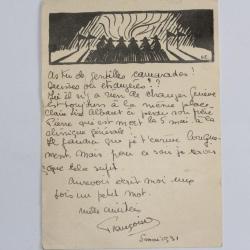 As tu de gentilles camarades!
Suisses ou étrangères??
Ici il n'y a rien de changé Genève
est toujours à la même place.
Claire Lise Albaut a perdu son père
Pierre qui est mort le 5 mai à la
clinique générale
Il faudra que je t'écrive longue-
ment. Mais pour ce soir je
que cela suffit.
Au revoir écrit moi une
fois un petit mot.
mille amitiés
Françoise
5 mai 1931